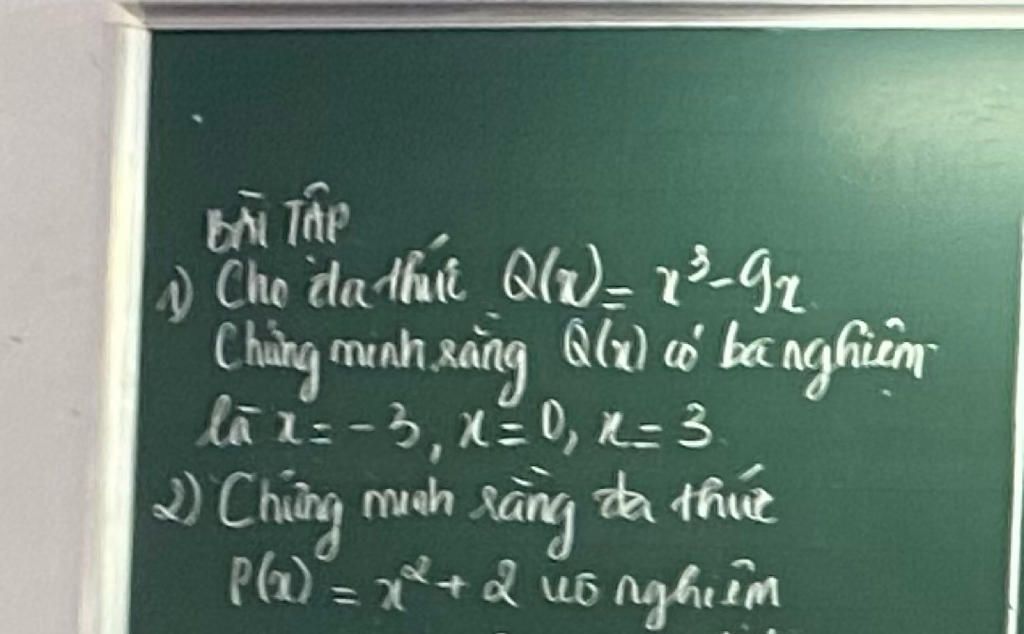 BÀI TẬP
1) Cho đa thức Q(x) = x³ - 9x
Chứng minh rằng Q(x) có ba nghiệm
là x = -3, x = 0, x = 3
2) Chứng minh rằng đa thức
P(x) = x² + 2 vô nghiệm